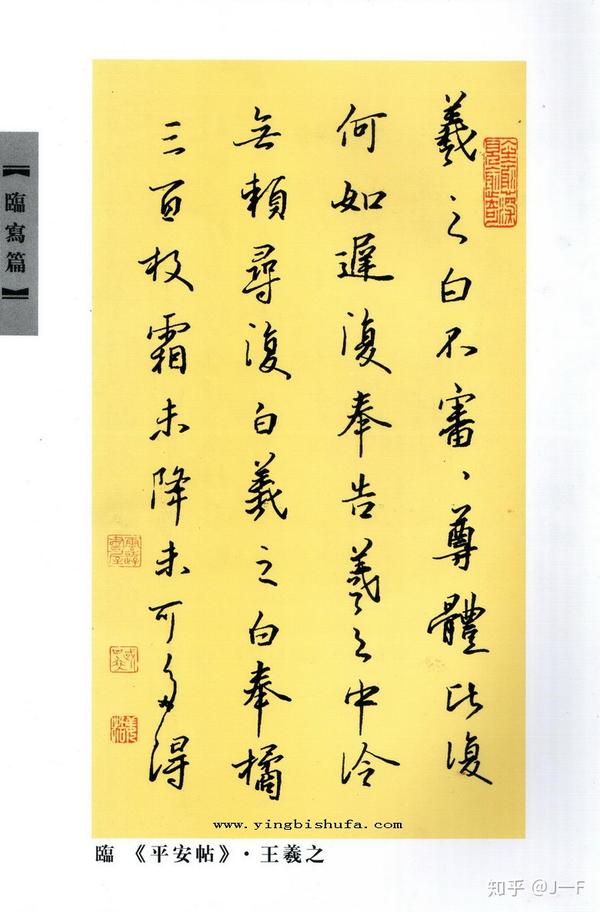 【臨寫篇】
羲之白不審、尊體比復
何如遲復奉告羲之中冷
無賴尋復白羲之白奉橘
三百枚霜未降未可多得
www.yingbishufa.com
臨《平安帖》·王羲之
知乎 @J—F